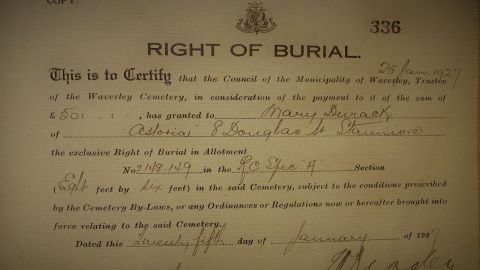 COPY.
336
RIGHT OF BURIAL.
25 Jan. 1927
This is to Certify that the Council of the Municipality of Waverley, Trustee
of the Waverley Cemetery, in consideration of the payment to it of the sum of
£ 50 : - : - , has granted to Mary Durack
of "Astoria" 8 Douglas St Stanmore
the exclusive Right of Burial in Allotment
No. 3148.149 in the R.C. Spec. "A" Section
(Eight feet by six feet) in the said Cemetery, subject to the conditions prescribed
by the Cemetery By-Laws, or any Ordinances or Regulations now or hereafter brought into
force relating to the said Cemetery.
Dated this Twenty fifth day of January of 1927.